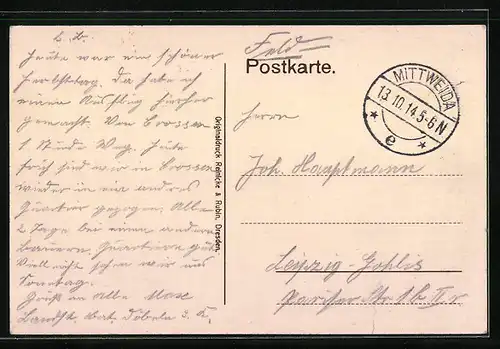 L. H.
Heute war ein schöner
Herbsttag. Da habe ich
einen Ausflug hierher
gemacht. Von Crossen
1 Stunde Weg. Heute
früh sind wir in Crossen
wieder in ein anderes
Quartier gezogen. Alle
2 Tage bei einem andern
Bauern. Quartiere gut.
Vielleicht sehn wir uns
Sonntag.
Gruß an Alle Max
Landst. Bat. Döbeln 3. K.
Originaldruck Reinicke & Rubin, Dresden.
Feld-
Postkarte.
MITTWEIDA
13.10.14.5-6N
* e *
Herrn
Joh. Hauptmann
Leipzig-Gohlis
Pariser Str. 1b II r